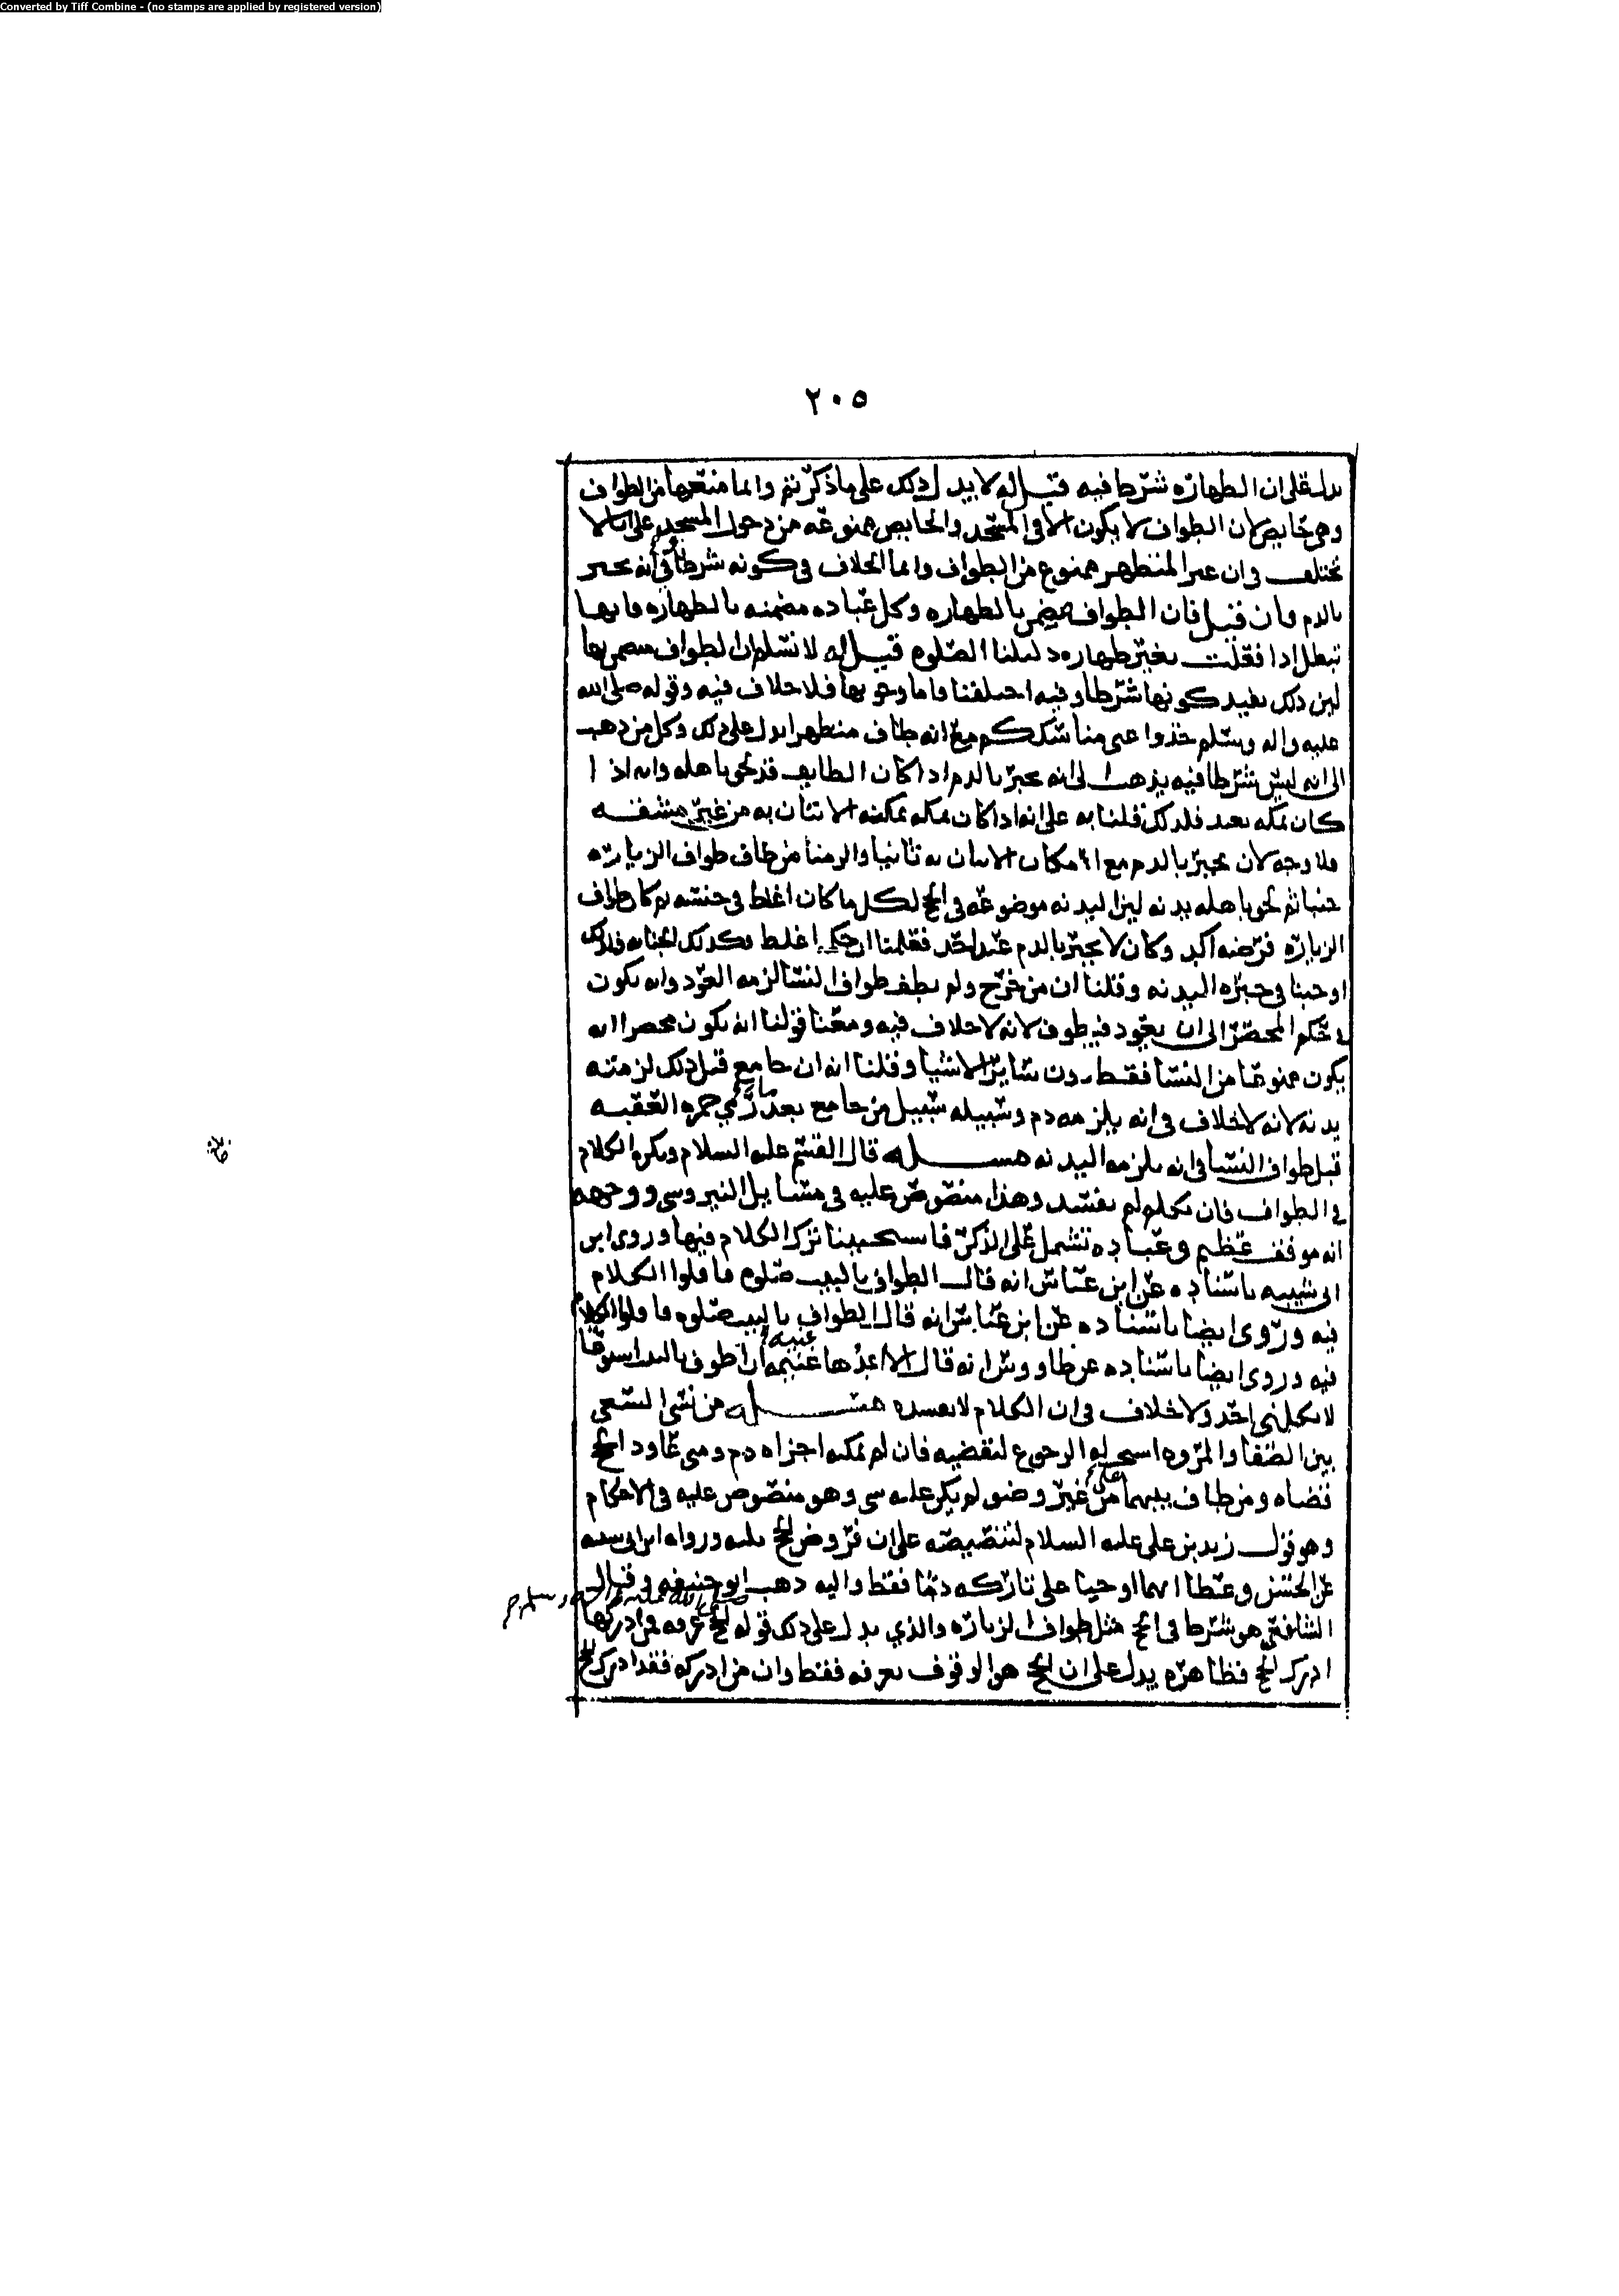 Converted by Tiff Combine - (no stamps are applied by registered version)
٢٠٥
يدلك على ان الطهارة شرط فيه قيل له لا يدل ذلك على ما ذكرتم وانما منعها من الطواف
وهي حايض لان الطواف لا يكون الا في المسجد والحايض ممنوعة من دخول المسجد على انا لا
نختلف في ان غير المتطهر ممنوع من الطواف وانما الخلاف في كونه شرطا وفي انه يجبر
بالدم فان قيل فان الطواف مضمن بالطهارة وكل عبادة مضمنة بالطهارة فانها
تبطل اذا فعلت بغير طهارة دليلنا الصلوة قيل له لا نسلم ان الطواف مضمن بها
لين ذلك يفيد كونها شرطا وفيه اختلفنا واما وجوبها فلا خلاف فيه وقوله صلى الله
عليه واله وسلم خذوا عني مناسككم مع انه طاف متطهرا يدل على ذلك وكل من ذهب
الى انه ليس بشرط فيه يذهب الى انه يجبر بالدم اذا كان الطايف قد لحق باهله وانه اذا
كان بمكة يعيد فلذلك قلنا به على انه اذا كان بمكة يمكنه الاتيان به من غير مشقة
فلا وجه لان يجبر بالدم مع امكان الاتيان به ثانيا والزمنا من طاف طواف الزيارة
جنبا ثم لحق باهله بدنة لين البدنة موضوعة في الحج لكل ما كان اغلظ في جنسه ثم كان طواف
الزيارة فرضه اكد وكان لا يجبر بالدم عند احد فعلمنا ان حكمه اغلظ وكذلك الجنابة فلذلك
اوجبنا في جبره البدنة وقلنا ان من خرج ولم يطف طواف النسا لزمه العود وانه يكون
في حكم المحصر الى ان يعود فيطوف لانه لا خلاف فيه ومعنا قولنا انه يكون محصرا انه
يكون ممنوعا من النسا فقط دون ساير الاشيا وقلنا انه ان جامع قبل ذلك لزمته
بدنة لانه لا خلاف في انه يلزمه دم وسبيله سبيل من جامع بعد رمي جمرة العقبة
قبل طواف النسا في انه يلزمه البدنة مسـلة قال القسم عليه السلام ويكره الكلام
في الطواف فان تكلم لم يفسد وهذا منصوص عليه في مسايل النيروسي ووجهه
انه موقف عظيم وعبادة تشتمل على الذكر فاستحببنا ترك الكلام فيها وروى ابن
ابي شيبه باسناده عن ابن عباس انه قال الطواف بالبيت صلوة فاقلوا الكلام
فيه وروى ايضا باسناده عن ابن عباس انه قال الطواف بالبيت صلوة فاقلوا الكلام
فيه وروى ايضا باسناده عن طاووس انه قال الا اعدها غنيمة ان اطوف بالبيت اسبوعا
لا يكلمني احد ولا خلاف في ان الكلام لا يفسده مسـلة من نسي السعي
بين الصفا والمروة استحب له الرجوع ليقضيه فان لم يمكنه اجزاه دم ومتى عاود الحج
قضاه ومن طاف بينهما على غير وضو لم يكن عليه شي وهو منصوص عليه في الاحكام
وهو قول زيد بن علي عليه السلام لتنصيصه على ان فروض الحج ثلثة ورواه ابن ابي شيبه
عن الحسن وعطا انهما اوجبا على تاركه دما فقط واليه ذهب ابو حنيفة وقال
الشافعي هو شرط في الحج مثل طواف الزيارة والذي يدل على ذلك قوله صلى الله عليه واله وسلم الحج عرفة فمن ادركها
ادرك الحج فظاهره يدل على ان الحج هو الوقوف بعرفة فقط وان من ادركه فقد ادرك الحج